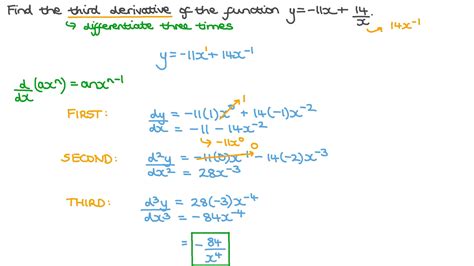 Find the third derivative of the function y=-11x + 14/x.
↳ differentiate three times
↪ 14x⁻¹
y = -11x¹ + 14x⁻¹
d/dx (axⁿ) = anxⁿ⁻¹
FIRST: dy/dx = -11(1)x⁰ + 14(-1)x⁻² 1
= -11 - 14x⁻²
↳ -11x⁰
SECOND: d²y/dx² = -11(0)x⁻¹ - 14(-2)x⁻³ 0
= 28x⁻³
THIRD: d³y/dx³ = 28(-3)x⁻⁴
= -84x⁻⁴
= -84/x⁴